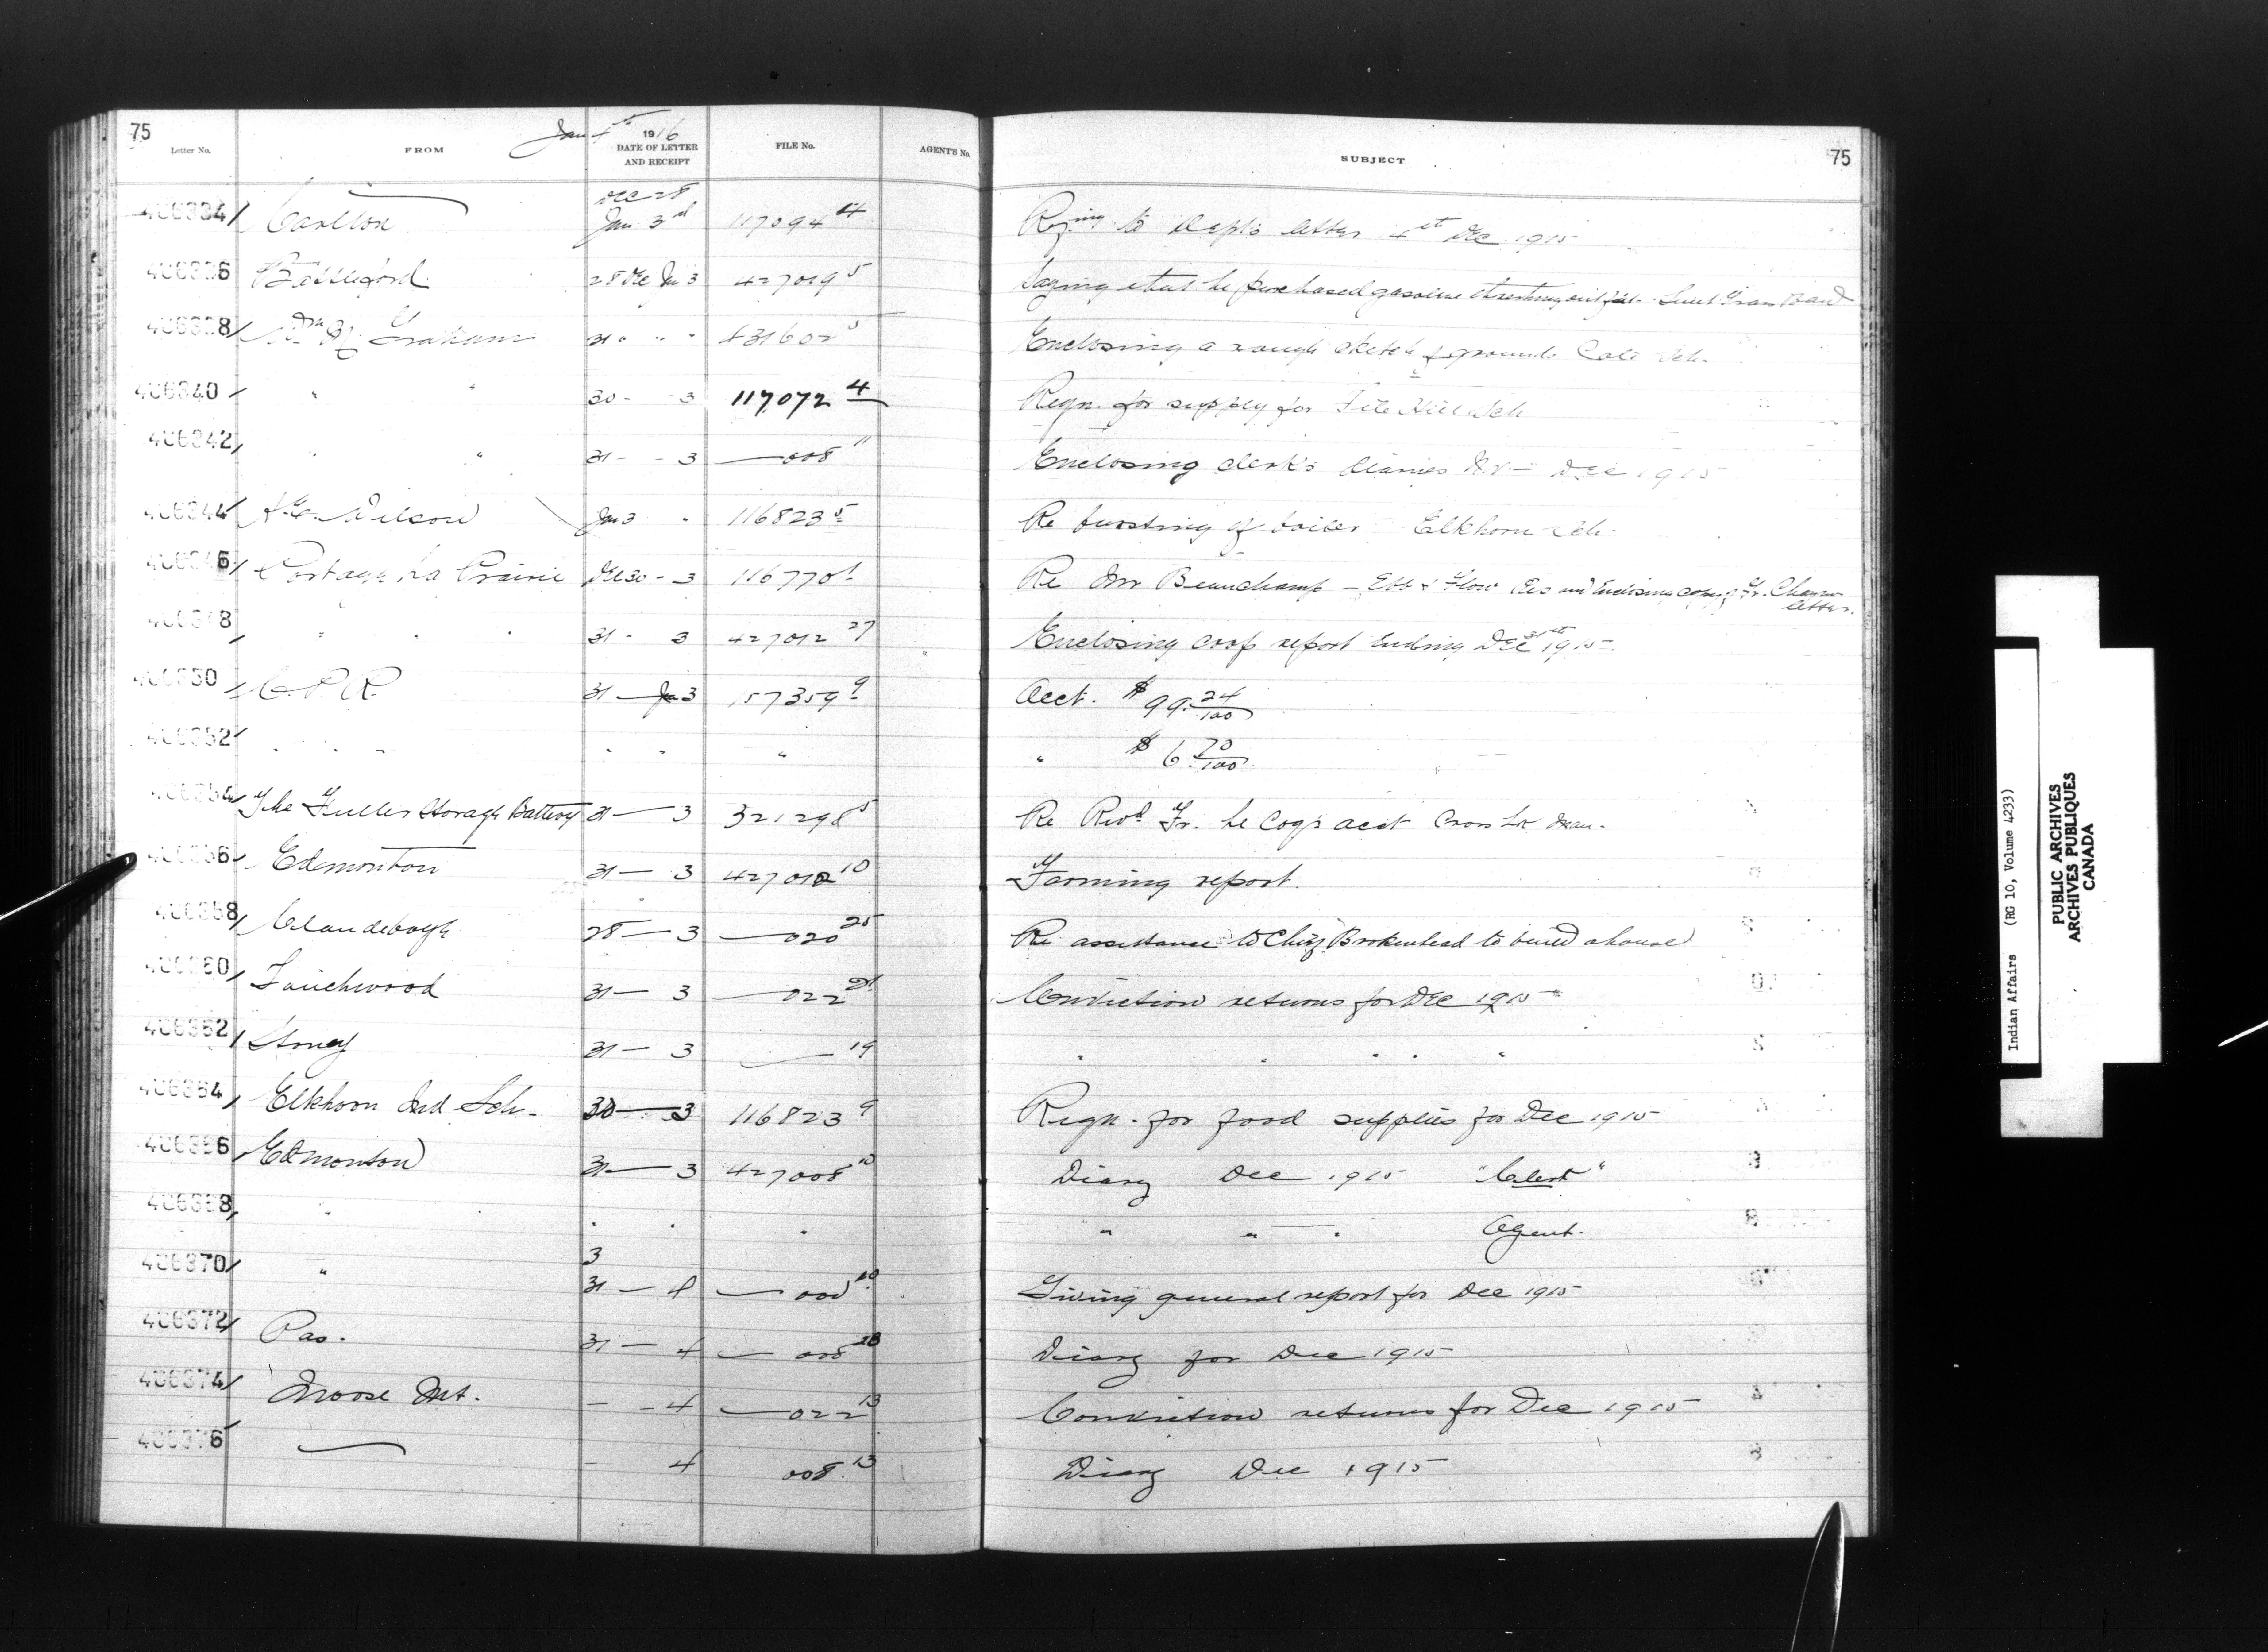 75 Jan 4th 1916 75
Letter No. FROM DATE OF LETTER AND RECEIPT FILE No. AGENT'S No. SUBJECT
406334 Carlton Dec 28 Jan 3rd 117094 14 Rfing to Dept's letter 4th Dec 1915
406336 Battleford 28 Dec Jan 3 427019 5 Saying that he purchased gasoline threshing outfit - Band
406338 Wm M Graham 31 " " " 431602 5 Enclosing a rough sketch of grounds Sch.
406340 " " 30 - 3 117072 4 Reqn. for supply for File Hill Sch
406342 " " 31 - - 3 — 008 11 Enclosing clerk's diaries Dec 1915
406344 A.E. Wilson Jan 3 " 116823 5 Re bursting of boiler Elkhorn Sch.
406346 Portage La Prairie Dec 30 - 3 116770 1 Re Mr Beauchamp - Ebb & Flow Res and Enclosing copy of Fr. letter.
406348 " " 31 - 3 427012 27 Enclosing crop report ending Dec 31st 1915
406350 C.P.R. 31 — Jan 3 157359 9 Acct. $99 24/100
406352 " " " " " " " $6 70/100
406354 The Fuller Storage Battery 31 — 3 321298 5 Re Revd Fr. Le Coq's acct Cross Lk Man.
406356 Edmonton 31 — 3 427012 10 Farming report.
406358 Clandeboye 28 — 3 — 020 25 Re assistance to Chief Brokenhead to build a house
406360 Touchwood 31 — 3 — 022 21 Conviction returns for Dec 1915
406362 Stoney 31 — 3 — 19 " " " " "
406364 Elkhorn Ind Sch. 30 — 3 116823 9 Reqn. for food supplies for Dec 1915
406366 Edmonton 31 — 3 427008 10 Diary Dec 1915 "Clerk"
406368 " " " " " " " Agent.
406370 " 3 31 — 4 — 000 10 Giving general report for Dec 1915
406372 Pas. 31 — 4 — 008 28 Diary for Dec 1915
406374 Moose Mt. - - 4 — 022 13 Conviction returns for Dec 1915
406376 — - 4 008 13 Diary Dec 1915
Indian Affairs (RG 10, Volume 4233)
PUBLIC ARCHIVES
ARCHIVES PUBLIQUES
CANADA